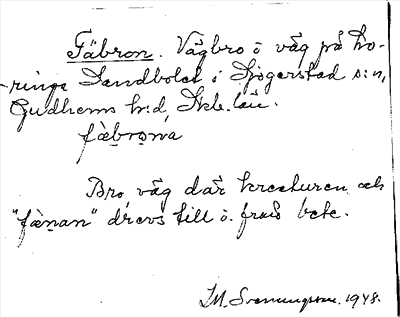 Fäbron. Vägbro ö väg på Tho-
-ringa Sandbolet i Sjogerstad s:n,
Gudhems hr:d, Skb. län.
fäbrowa
Bro väg där kreaturen och
"fänan" drevs till o. från bete.
1948.